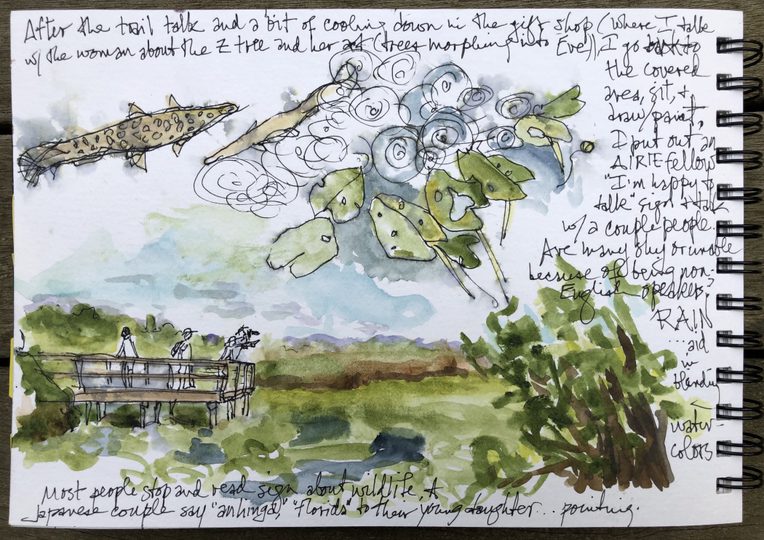 After the trail talk and a bit of cooling down in the gift shop (where I talk
w/ the woman about the Z tree and her art (trees morphing into Eve)) I go back to
the covered
area, sit, +
draw/paint.
I put out an
AIRIE fellow
"I'm happy to
talk" sign + talk
w/ a couple people.
Are many shy or unable
because of being non-
English speaker?
RAIN
...aid
in
blending
water-
colors
Most people stop and read sign about wildlife. A
Japanese couple say "anhinga," "florida" to their young daughter... pointing.